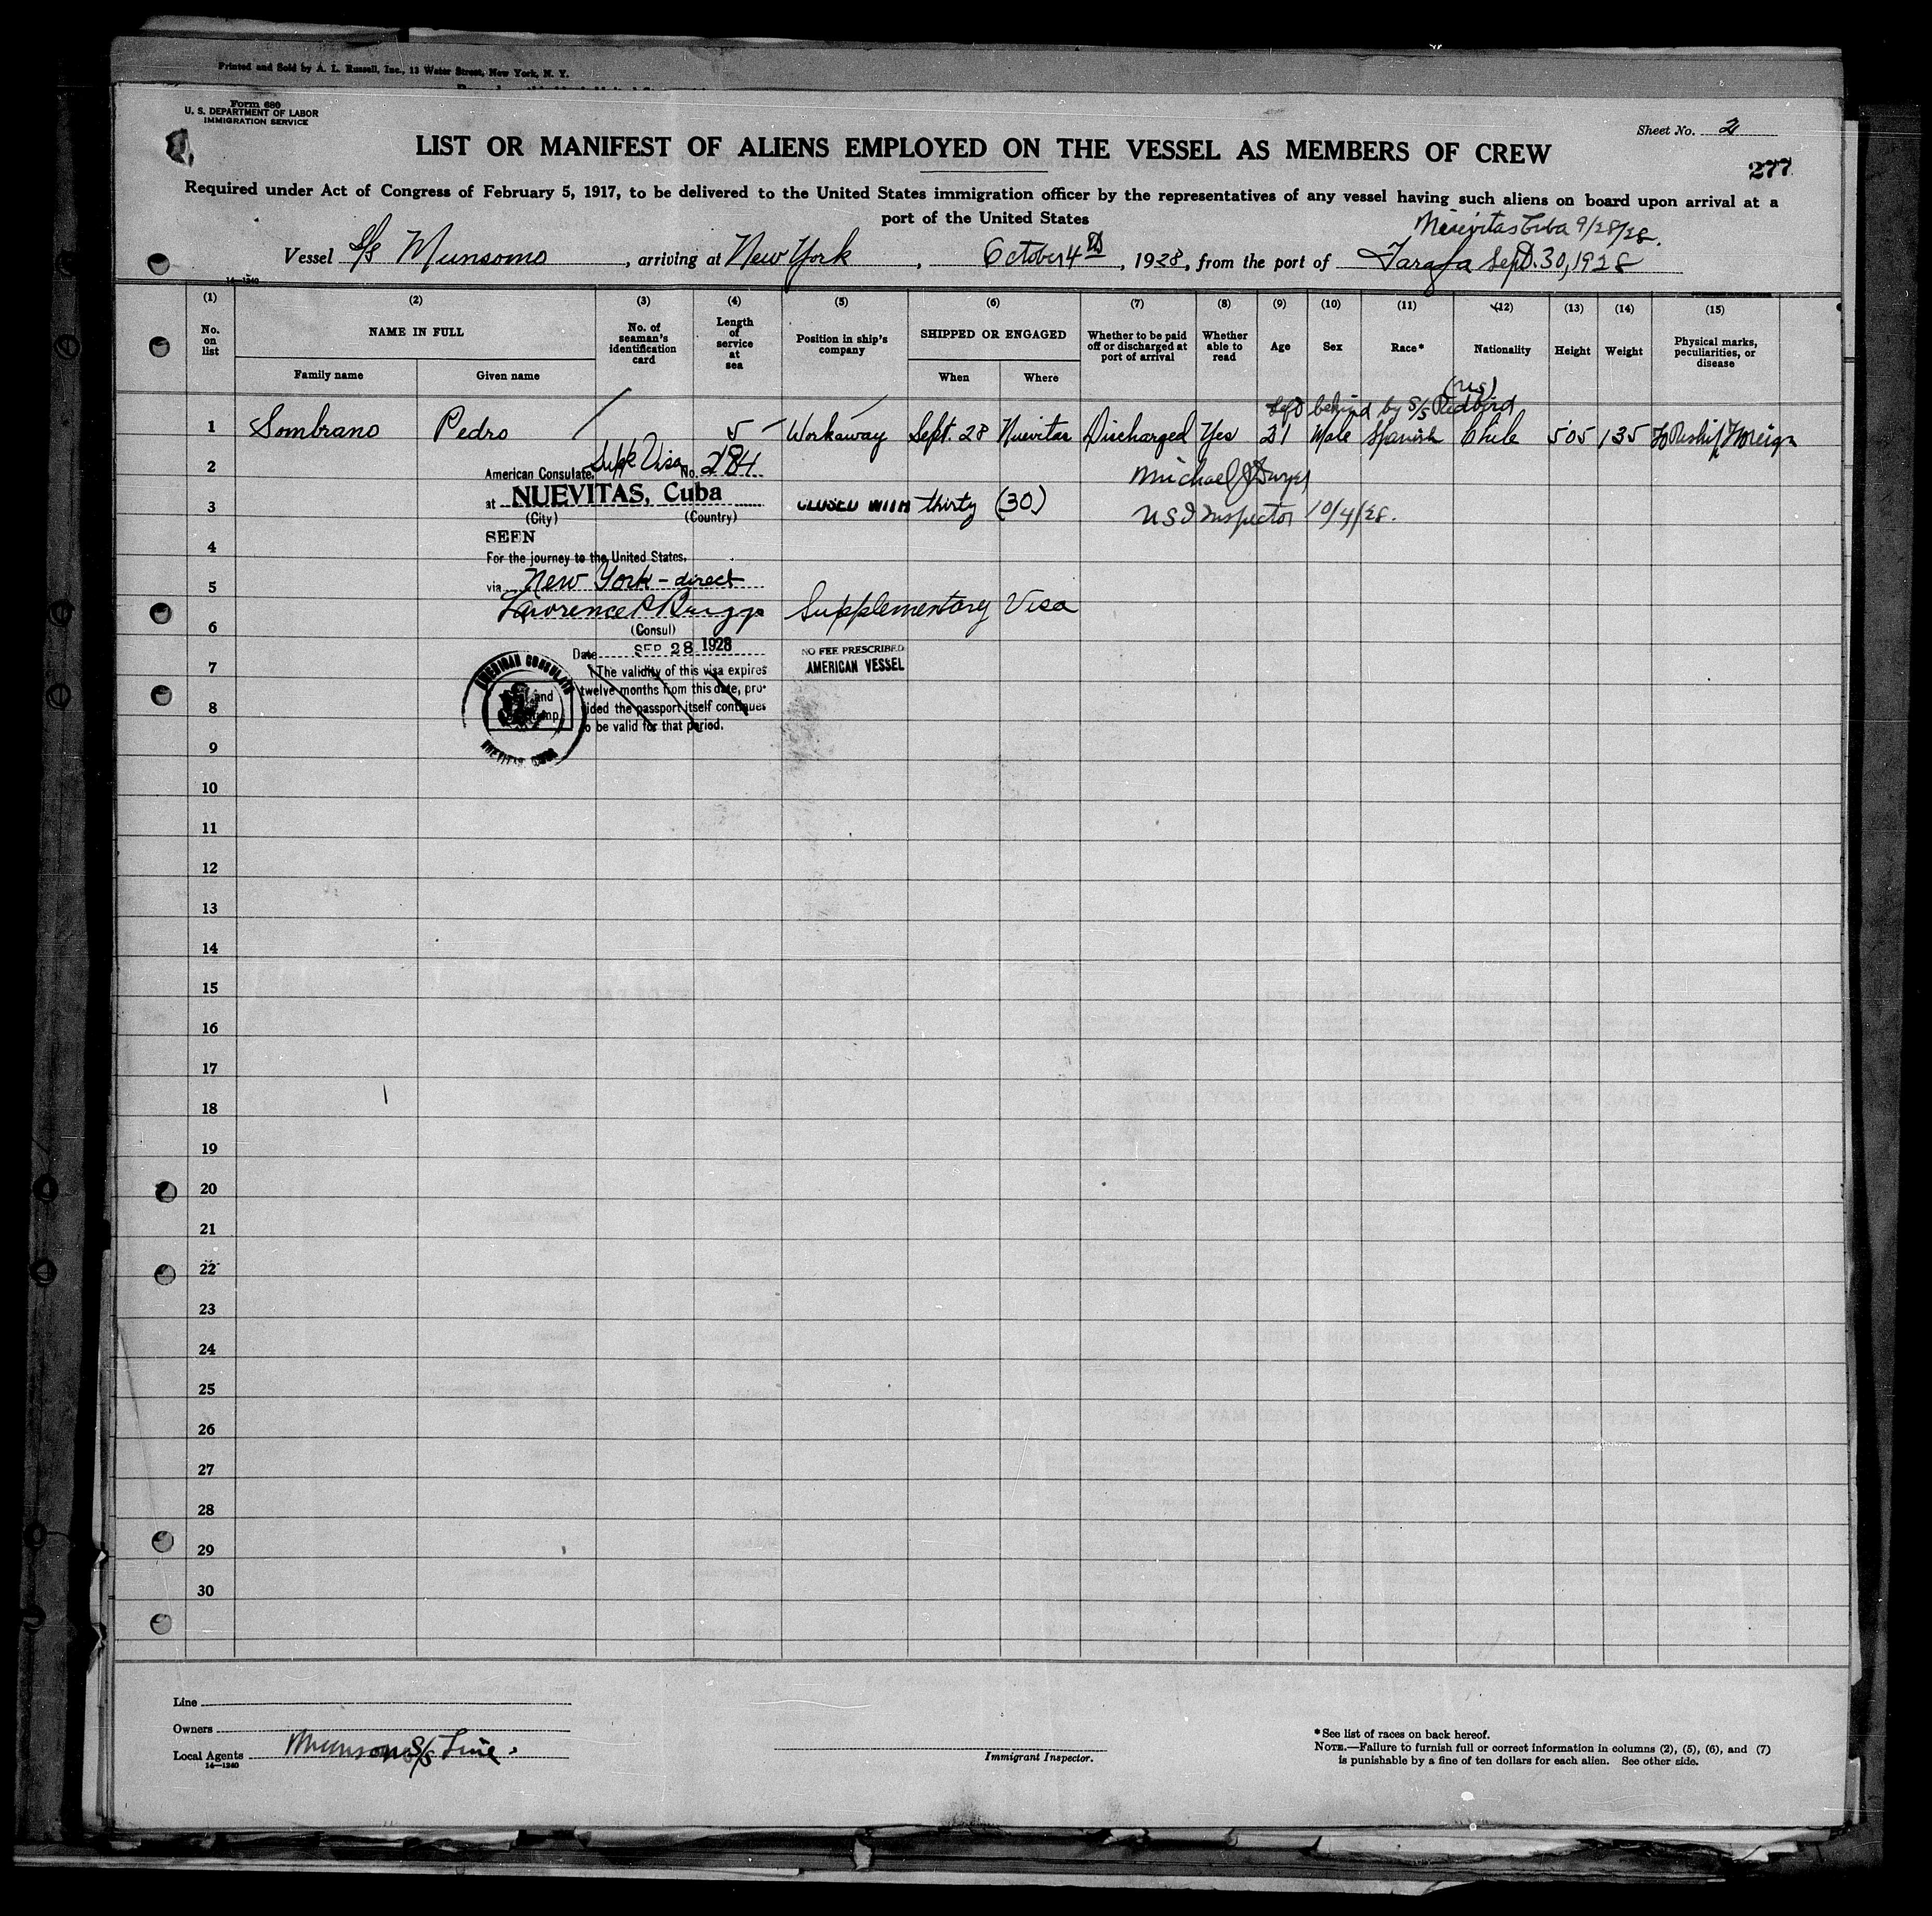 Printed and Sold by A. L. Russell, Inc., 13 Water Street, New York, N. Y.
Form 680
U. S. DEPARTMENT OF LABOR
IMMIGRATION SERVICE
Sheet No. 2
LIST OR MANIFEST OF ALIENS EMPLOYED ON THE VESSEL AS MEMBERS OF CREW
277
Required under Act of Congress of February 5, 1917, to be delivered to the United States immigration officer by the representatives of any vessel having such aliens on board upon arrival at a
port of the United States
Nuevitas Cuba 9/28/28.
Vessel S/S Munsomo, arriving at New York, October 4th, 1928, from the port of Tarafa Sept. 30, 1928
14—1240
(1) (2) (3) (4) (5) (6) (7) (8) (9) (10) (11) (12) (13) (14) (15)
No. on list
NAME IN FULL
Family name
Given name
No. of seaman's identification card
Length of service at sea
Position in ship's company
SHIPPED OR ENGAGED
When
Where
Whether to be paid off or discharged at port of arrival
Whether able to read
Age
Sex
Race*
Nationality
Height
Weight
Physical marks, peculiarities, or disease
(us)
Left behind by S/S Redbird
1 Sombrano Pedro 5 Workaway Sept. 28 Nuevitas Discharged Yes 21 Male Spanish Chile 5'05 135 To Reship Foreign
2
American Consulate, Supl Visa No. 284
Michael J Dwyer
3
at NUEVITAS, Cuba
CLOSED WITH thirty (30)
US Inspector 10/4/28.
(City) (Country)
SEEN
4
For the journey to the United States,
5
via New York - direct
Lawrence P Briggs
Supplementary Visa
6
(Consul)
Date SEP 28 1928
NO FEE PRESCRIBED
AMERICAN VESSEL
7
The validity of this visa expires
twelve months from this date, pro-
vided the passport itself continues
to be valid for that period.
AMERICAN CONSULATE
NUEVITAS, CUBA
8
9
10
11
12
13
14
15
16
17
18
19
20
21
22
23
24
25
26
27
28
29
30
Line
Owners
Local Agents Munson S/S Line.
14—1240
Immigrant Inspector.
*See list of races on back hereof.
NOTE.—Failure to furnish full or correct information in columns (2), (5), (6), and (7)
is punishable by a fine of ten dollars for each alien. See other side.